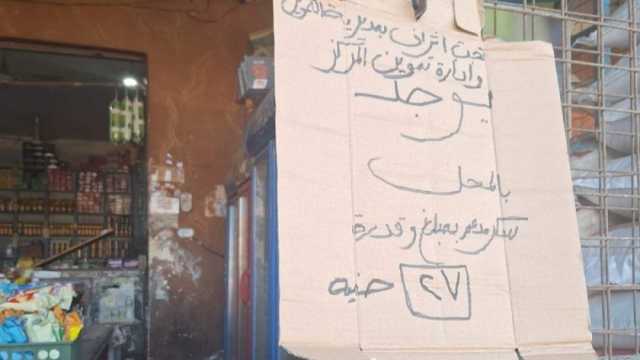 تحت اشراف بمديرية
وادارة تموين المركز
يوجد
بالمحل
سكر مدعم بمبلغ وقدرة
٢٧ جنيه